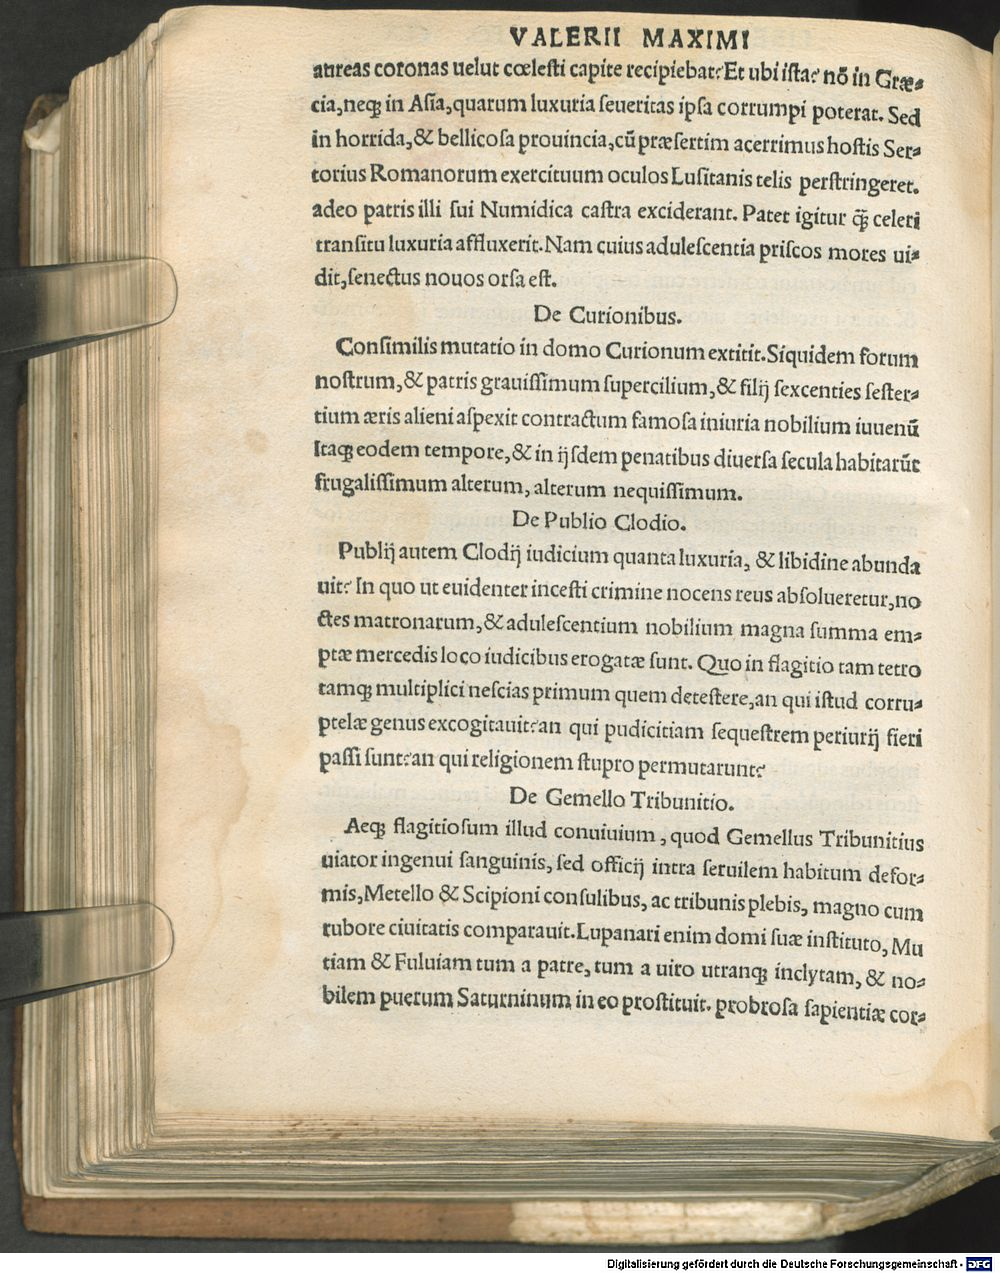 VALERII MAXIMI
aureas coronas uelut cœlesti capite recipiebat? Et ubi ista? nõ in Græ-
cia,neq; in Asia,quarum luxuria seueritas ipsa corrumpi poterat. Sed
in horrida,& bellicosa prouincia,cũ præsertim acerrimus hostis Ser-
torius Romanorum exercituum oculos Lusitanis telis perstringeret.
adeo patris illi sui Numidica castra exciderant. Patet igitur q̃; celeri
transitu luxuria affluxerit. Nam cuius adulescentia priscos mores ui-
dit,senectus nouos orsa est.
De Curionibus.
Consimilis mutatio in domo Curionum extitit. Siquidem forum
nostrum,& patris grauissimum supercilium,& filij sexcenties sester-
tium æris alieni aspexit contractum famosa iniuria nobilium iuuenũ
Itaq; eodem tempore,& in ijsdem penatibus diuersa secula habitarũt
frugalissimum alterum, alterum nequissimum.
De Publio Clodio.
Publij autem Clodij iudicium quanta luxuria, & libidine abunda
uit? In quo ut euidenter incesti crimine nocens reus absolueretur,no
ctes matronarum,& adulescentium nobilium magna summa em-
ptæ mercedis loco iudicibus erogatæ sunt. Quo in flagitio tam tetro
tamq; multiplici nescias primum quem detestere,an qui istud corru-
ptelæ genus excogitauit?an qui pudicitiam sequestrem periurij fieri
passi sunt?an qui religionem stupro permutarunt?
De Gemello Tribunitio.
Aeq; flagitiosum illud conuiuium, quod Gemellus Tribunitius
uiator ingenui sanguinis, sed officij intra seruilem habitum defor-
mis,Metello & Scipioni consulibus, ac tribunis plebis, magno cum
rubore ciuitatis comparauit. Lupanari enim domi suæ instituto, Mu
tiam & Fuluiam tum a patre, tum a uiro utranq; inclytam, & no-
bilem puerum Saturninum in eo prostituit. probrosa sapientiæ cor-
Digitalisierung gefördert durch die Deutsche Forschungsgemeinschaft - DFG